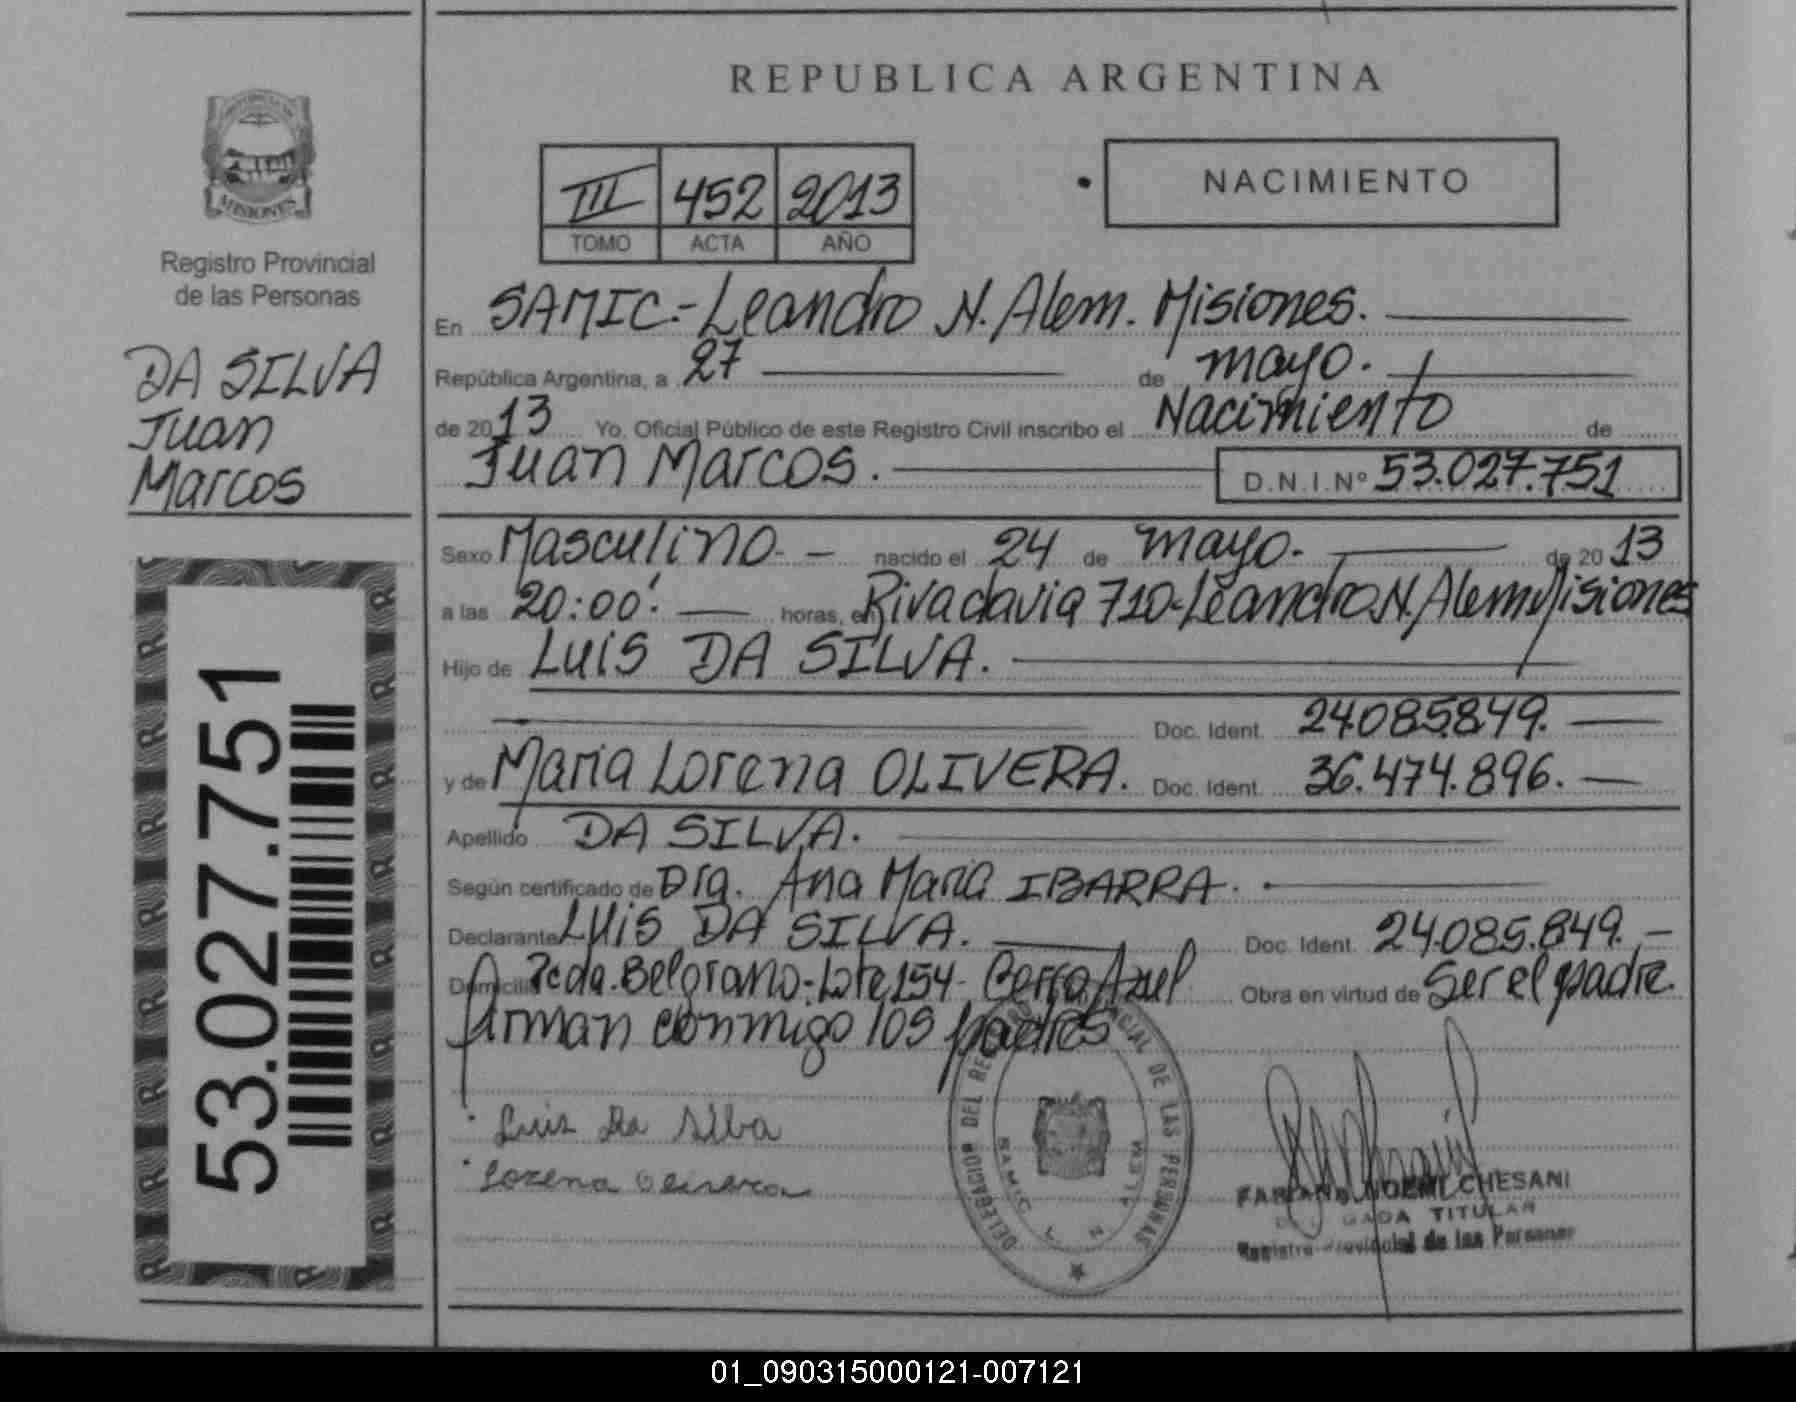 REPUBLICA ARGENTINA
MISIONES
Registro Provincial
de las Personas
DA SILVA
Juan
Marcos
53.027.751
III 452 2013
TOMO ACTA AÑO
NACIMIENTO
En SAMIC.-Leandro N. Alem. Misiones.
República Argentina, a 27 de mayo.
de 2013 Yo, Oficial Público de este Registro Civil inscribo el Nacimiento de
Juan Marcos. D.N.I.Nº 53.027.751
Sexo Masculino.- nacido el 24 de mayo. de 20 13
a las 20:00'. horas, en Rivadavia 710-Leandro N. Alem Misiones
Hijo de Luis DA SILVA.
Doc. Ident. 24.085.849.
y de Maria Lorena OLIVERA. Doc. Ident. 36.474.896.
Apellido DA SILVA.
Según certificado de Dra. Ana Maria IBARRA.
Declarante Luis DA SILVA. Doc. Ident. 24.085.849.-
Domicilio Pcda. Belgrano-Lote 154- Cerro Azul Obra en virtud de Ser el padre.
Firman conmigo los padres
Luis Da Silba
Lorena Olivera
DELEGACION DEL REGISTRO PROVINCIAL DE LAS PERSONAS
SAMIC L. N. ALEM
FABIANA NOEMI CHESANI
DELEGADA TITULAR
Registro Provincial de las Personas
01_090315000121-007121